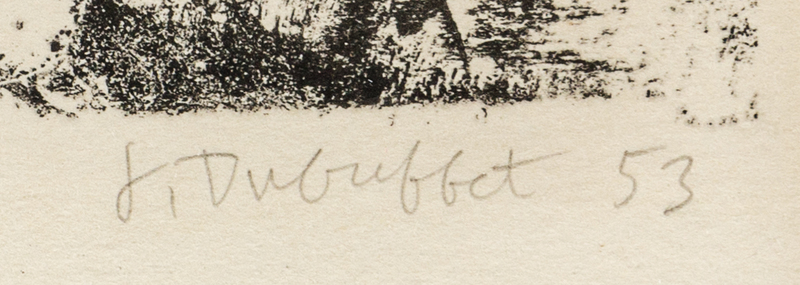 J. Dubuffet 53